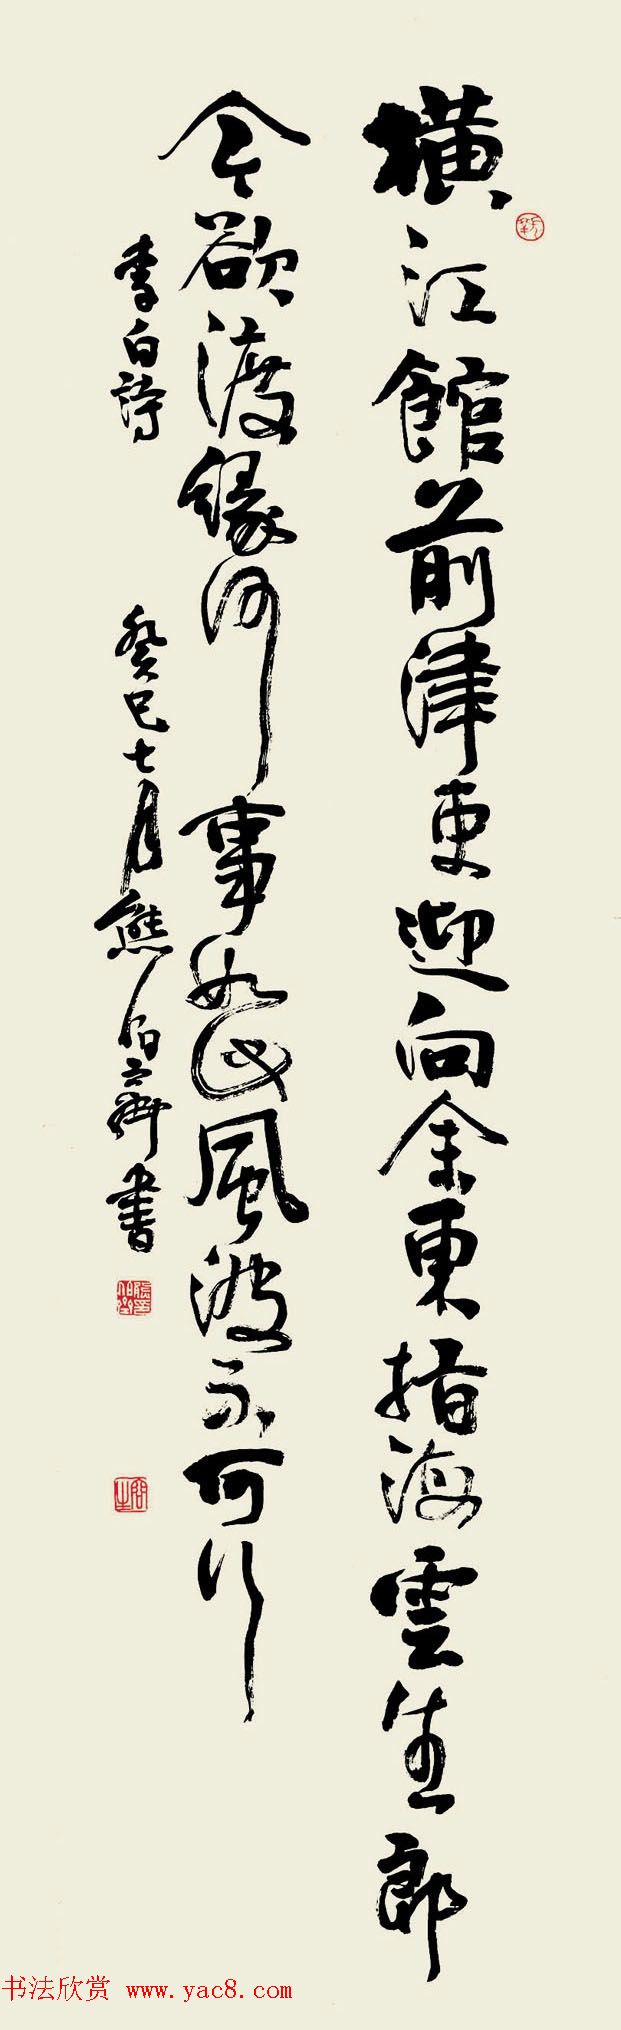 橫江館前津吏迎向余東指海雲生郎
今欲渡緣何事如此風波不可行
李白詩
癸巳七月熊伯齊書
书法欣赏 www.yac8.com